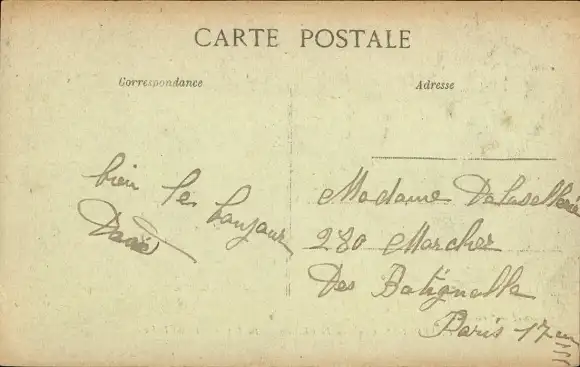 CARTE POSTALE
Correspondance
Adresse
bien le bonjour
Madame
280 Marcher
Des Batignolle
Paris 17 em